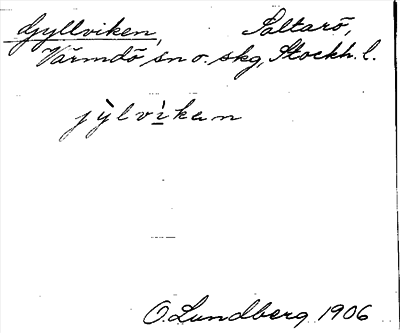 Gyllviken, Saltarö,
Värmdö sn o. skg, Stockh. l.
jy̆̀lvìkan
O. Lundberg 1906